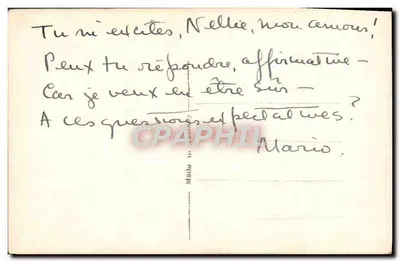 Tu m'excites, Nellie, mon amour!
Peux tu répondre, affirmative –
Car je veux en être sûr –
A ces questions expectatives?
CPAPHIL
Mario.
Made in